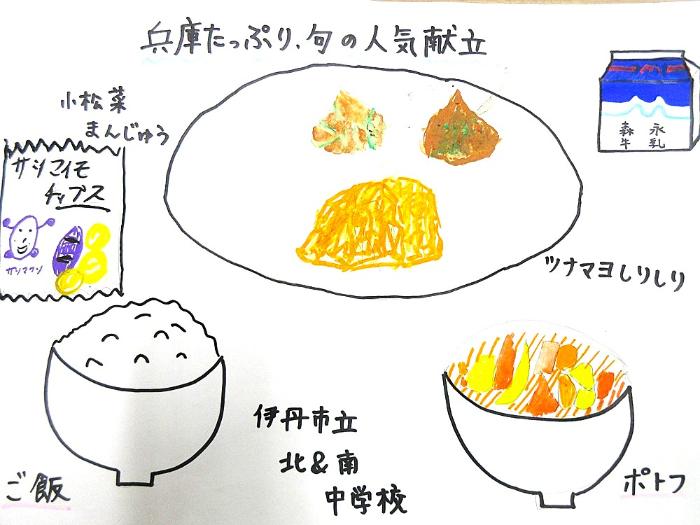 兵庫たっぷり、旬の人気献立
小松菜
まんじゅう
サツマイモ
チップス
サツマクン
森永
牛乳
ツナマヨしりしり
伊丹市立
北&南
中学校
ご飯
ポトフ